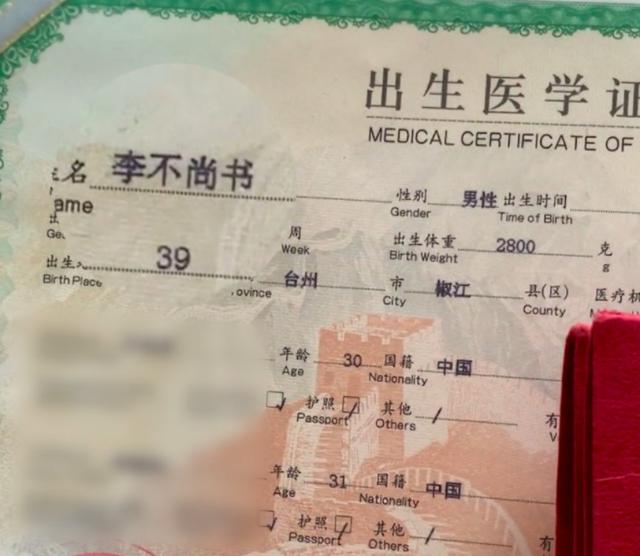 出生医学证
MEDICAL CERTIFICATE OF
名 李不尚书 性别 男性 出生时间
ame Gender Time of Birth
周 出生体重 2800 克
Ge Week Birth Weight g
出生 39 台州 市 椒江 县(区) 医疗机
Birth Place ovince City County
年龄 30 国籍 中国
Age Nationality
护照 其他 / 有
Passport Others V
年龄 31 国籍 中国
Age Nationality
护照 其他 / 有
Passport Others